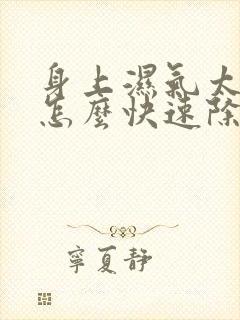 身上濕氣太
怎麼快速除
寧夏靜